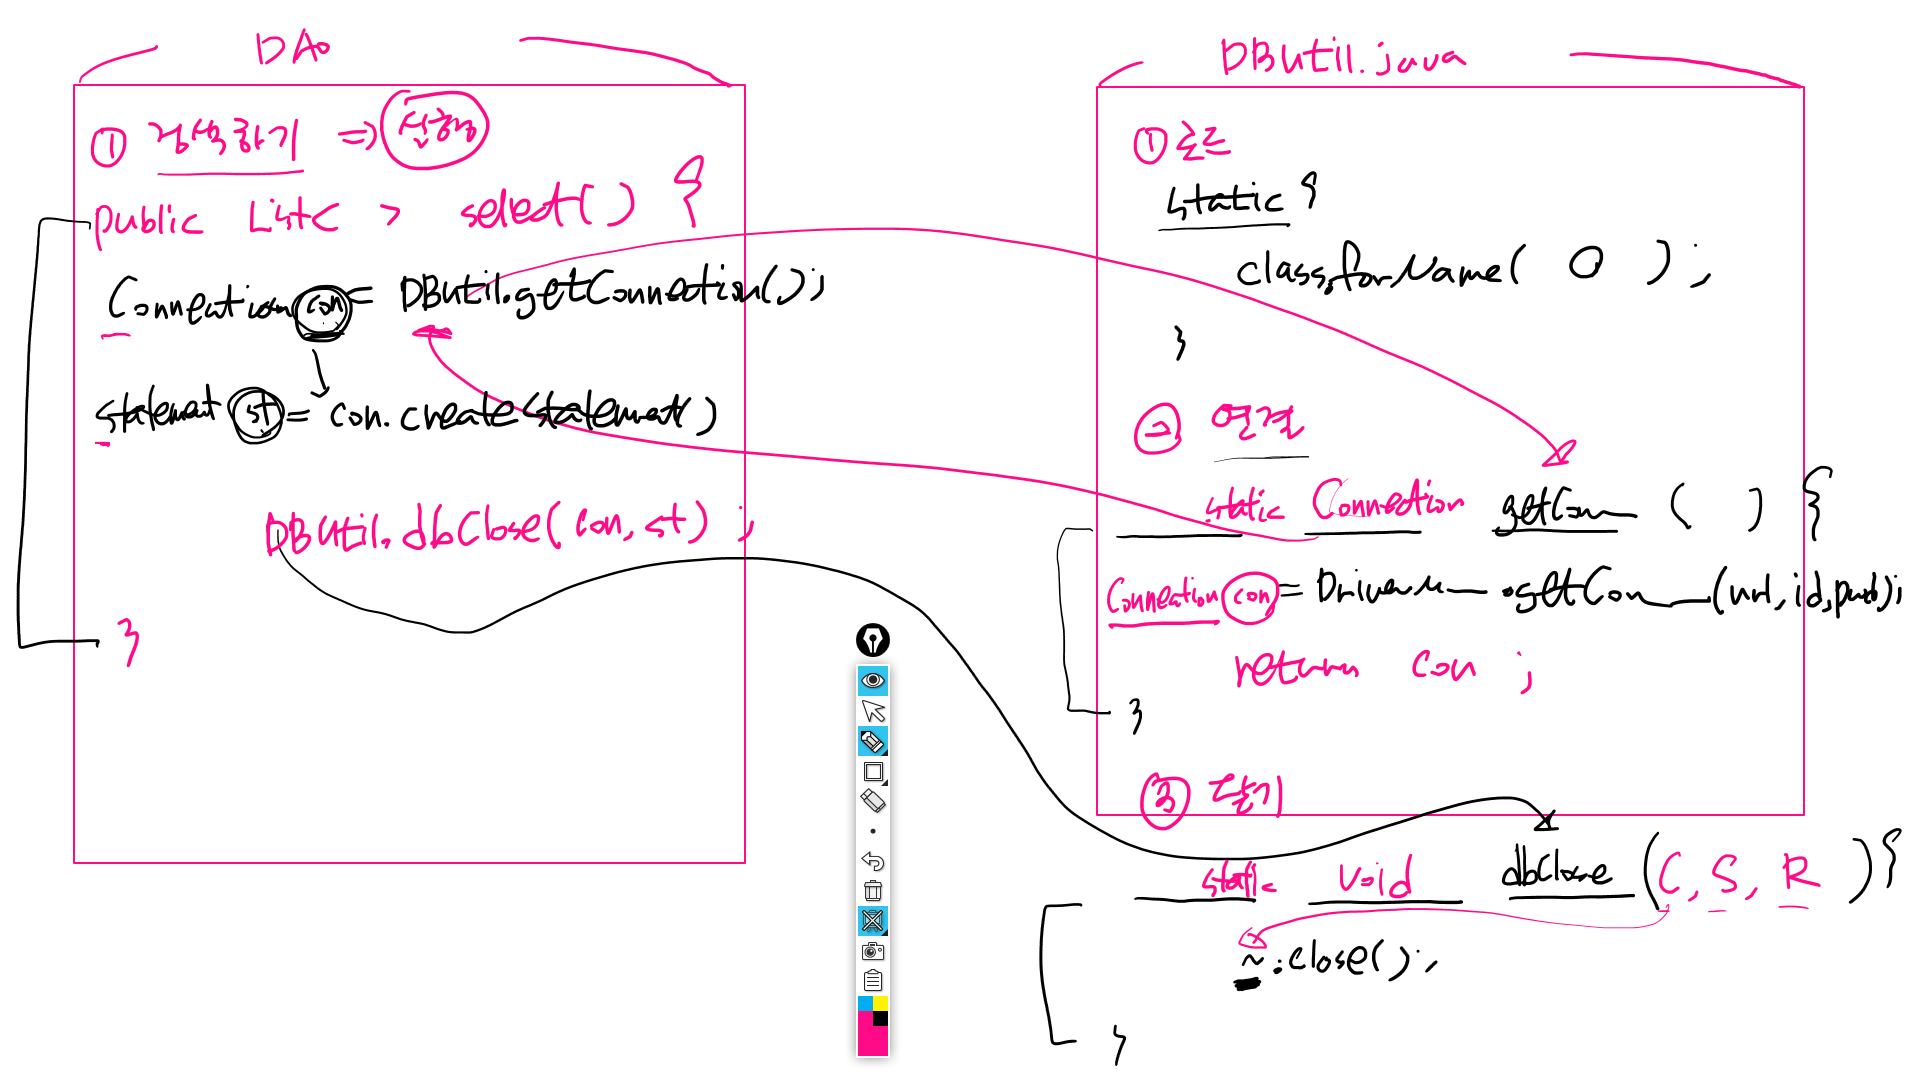 DAo
① 검색하기 => 실행
public List< > select() {
Connection con = DBUtil.getConnection();
statement st = con.createstatement()
DBUtil.dbClose(con, st) ;
}
DBUtil.java
① 로드
static {
class.forName( O ) ;
}
② 연결
static Connection getCon ( ) {
Connection con = DriverM .getCon (url, id, pwd);
return con ;
}
③ 닫기
static void dbClose ( C, S, R ) {
~.close();
}